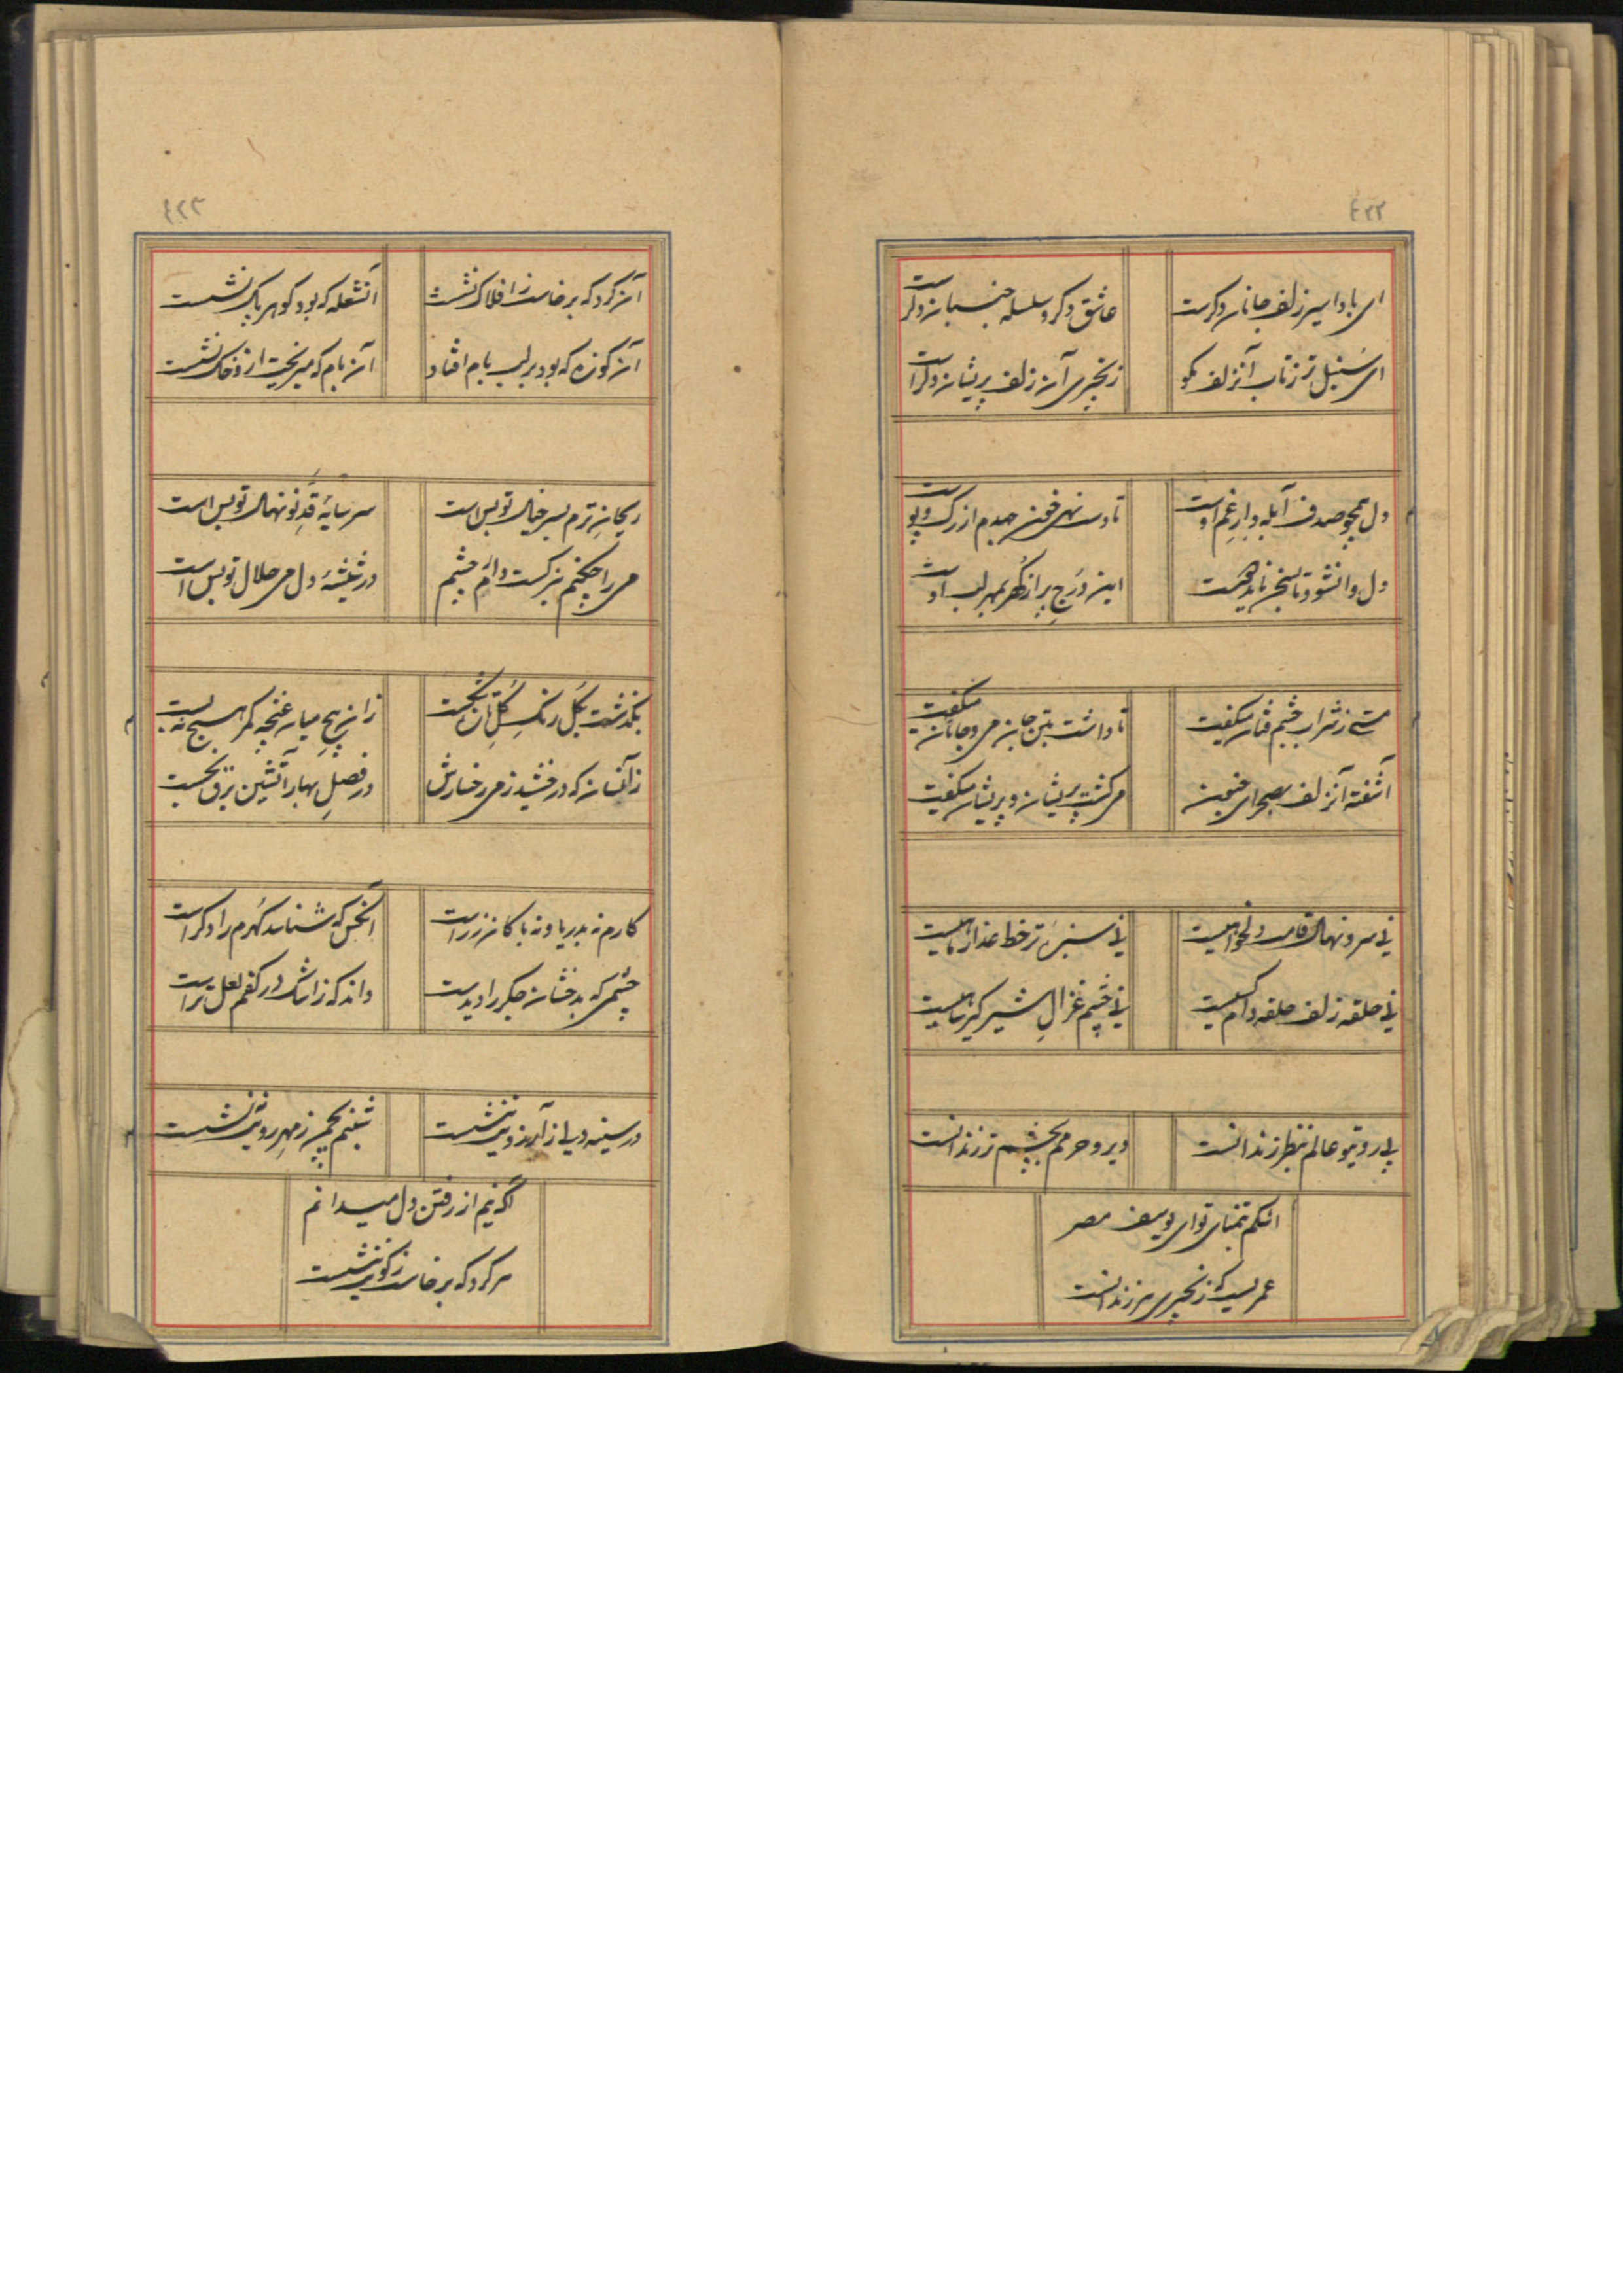 ۴۲۲
ای باد اسیر زلف جانان دگرست
عاشق دگر و سلسله جنبان دگر است
ای سنبل تر ز تاب آنزلف مگو
زنجیری آن زلف پریشان دگر است
دل همچو صدف آبله دار غم اوست
تا دست نهی خون جهدم از رگ و پوست
دل وانشود تا بسخن ناید
این درج پر از گهر بمهر لب اوست
مستی ز شراب چشم فتان میگفت
تا داشت بتن جان می و جانان میگفت
آشفته آنزلف بصحرای جنون
می گشت پریشان و پریشان میگفت
نی سرو نهال قامت دلخواهیست
نی سبزه تر خط عذار ماهیست
نی حلقه زلف حلقه دام کسیست
نی چشم غزال شیر گیر
بی روی تو عالم بنظر زندانست
دیر و حرمم بچشم تر زندانست
اشکم بتمنای تو ای یوسف مصر
عمریست که زنجیری در زندانست
۴۲۳
آن گرد که برخاست ز افلاک نشست
آنشعله که بود گوهر پاک نشست
آن کوزه که بود بر لب بام افتاد
آن بام که میریخت ازو خاک نشست
ریحان ترم بسر خیال تو بس است
سر سایه قد نونهال تو بس است
می را چکنم نرگست دارم چشم
در شیشه دل می حلال تو بس است
بگذشت گل رنگ گلستان
زان پیچ میان غنچه کمر هیچ نبست
زآنسان که درخشید ز می رخسارش
در فصل بهار آتشین برق بجست
کارم نه بدریا و نه با کان زر است
آنکس که شناسد گهرم را دگر است
چشمی که بدخشان جگر را دیدست
داند که ز اشک در کفم لعل تر است
در سینه دمی ز آرزویت ننشست
شبنم بچمن ز مهر رویت ننشست
آگه نیم از رفتن دل میدانم
هر گرد که برخاست ز کویت ننشست